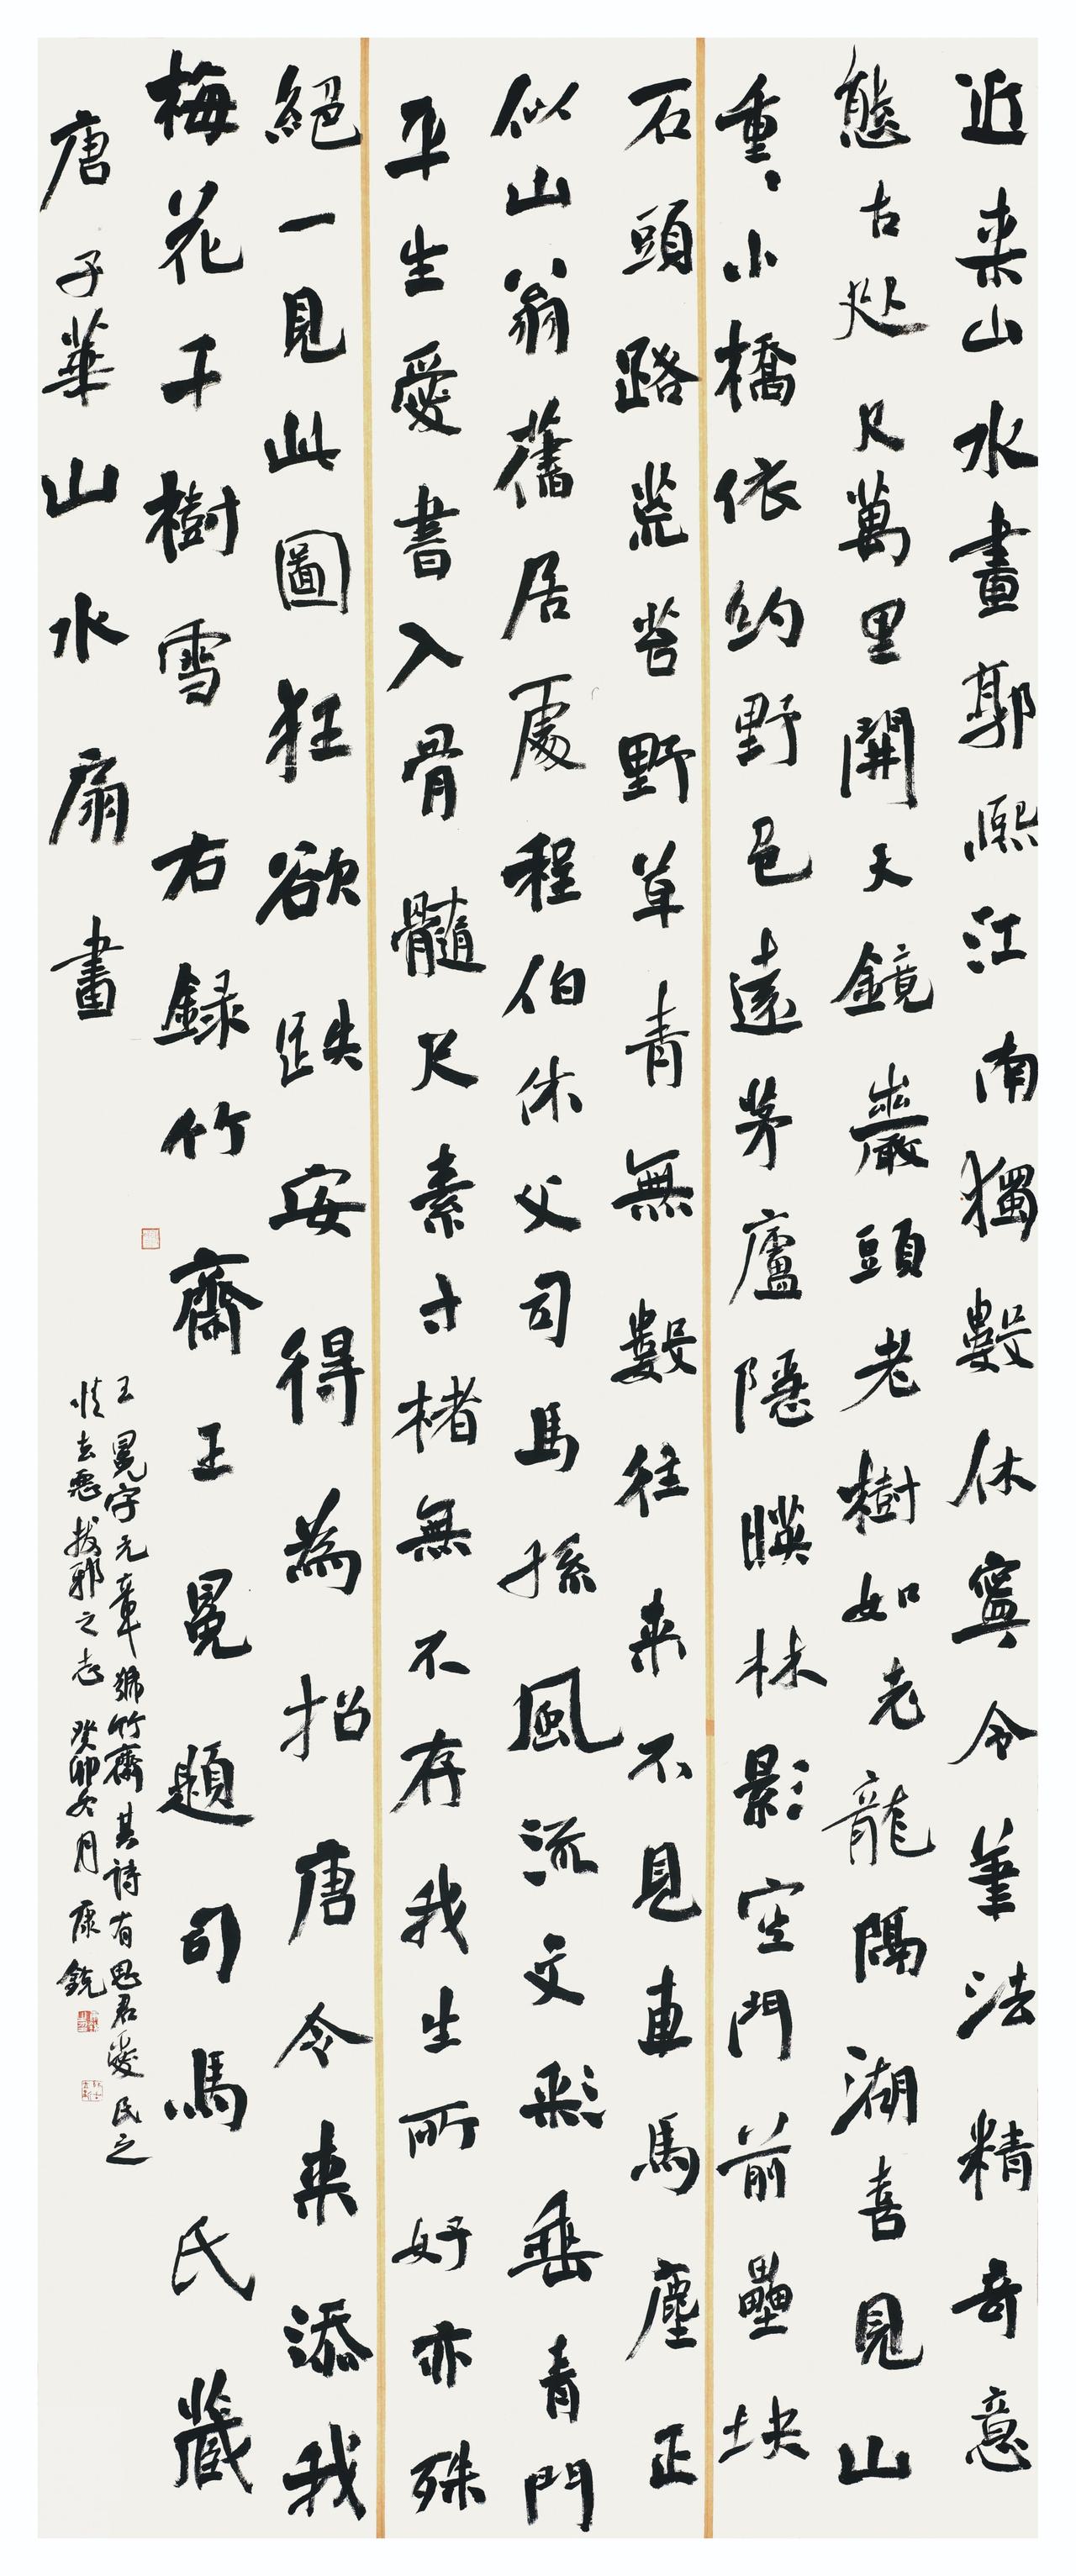 近来山水畫郭熙江南獨數休寧令筆法精奇意
態古处尺萬里開天鏡巖頭老樹如老龍隔湖喜見山
重〻小橋依約野邑遠茅廬隱暎林影空門前壘块
石頭路荒苔野草青無數往来不見車馬塵正
似山翁舊居處程伯休父司馬孫風流文彩垂青門
平生愛書入骨髓尺素寸楮無不存我生所好亦殊
絕一見此圖狂欲跌安得為招唐令来添我
梅花千樹雪右録竹齋王冕題司馬氏藏
唐子華山水扇畫
王冕字元章號竹齋其詩有思君愛民之
忱去惡拔邪之志 癸卯冬月 康銳